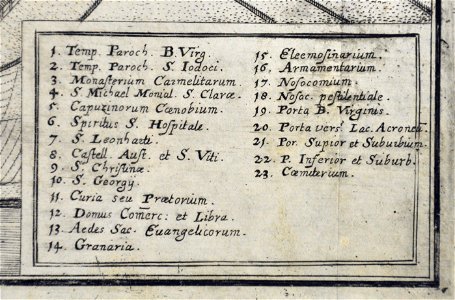 1. Temp. Paroch. B. Virg.
2. Temp. Paroch. S. Iodoci.
3. Monasterium Carmelitarum.
4. S. Michael Monial. S. Claræ.
5. Capuzinorum Cœnobium.
6. Spiritus S. Hospitale.
7. S. Leonharti.
8. Castell. Aust. et S. Viti.
9. S. Christinæ.
10. S. Georgij.
11. Curia seu Prætorium.
12. Domus Com̄erc: et Libra.
13. Aedes Sac. Euangelicorum.
14. Granaria.
15. Eleemosinarium.
16. Armamentarium.
17. Nosocomium.
18. Nosoc. pestilentiale.
19. Porta B. Virginis.
20. Porta vers⁹ Lac. Acroneū.
21. Por. Supior et Subuibium.
22. P. Inferior et Suburb.
23. Cœmiterium.